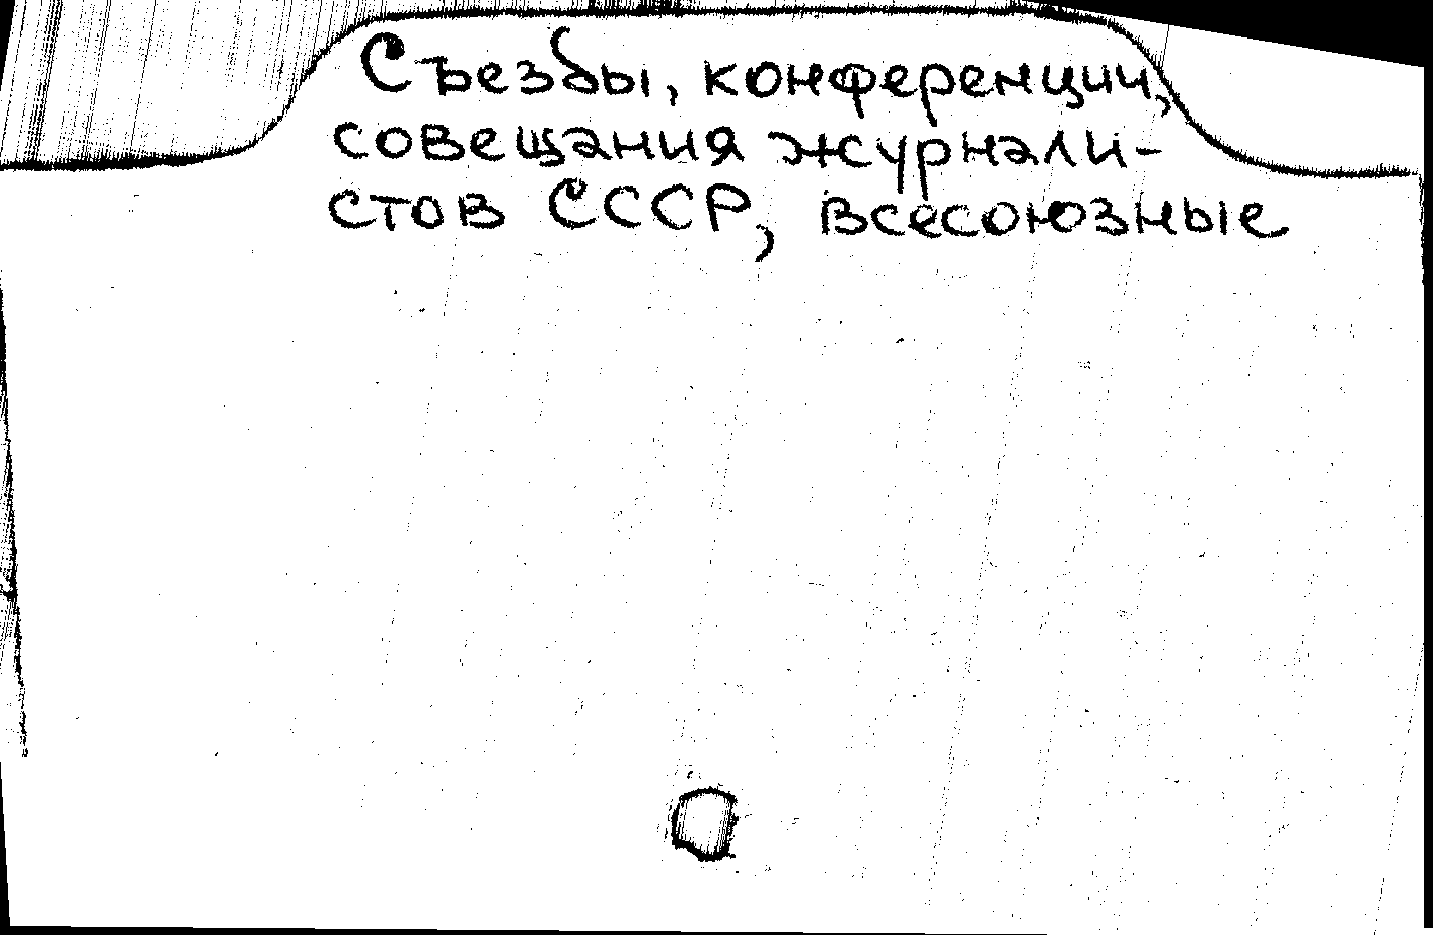 Съезды, конференции,
совещания журнали-
стов СССР, всесоюзные